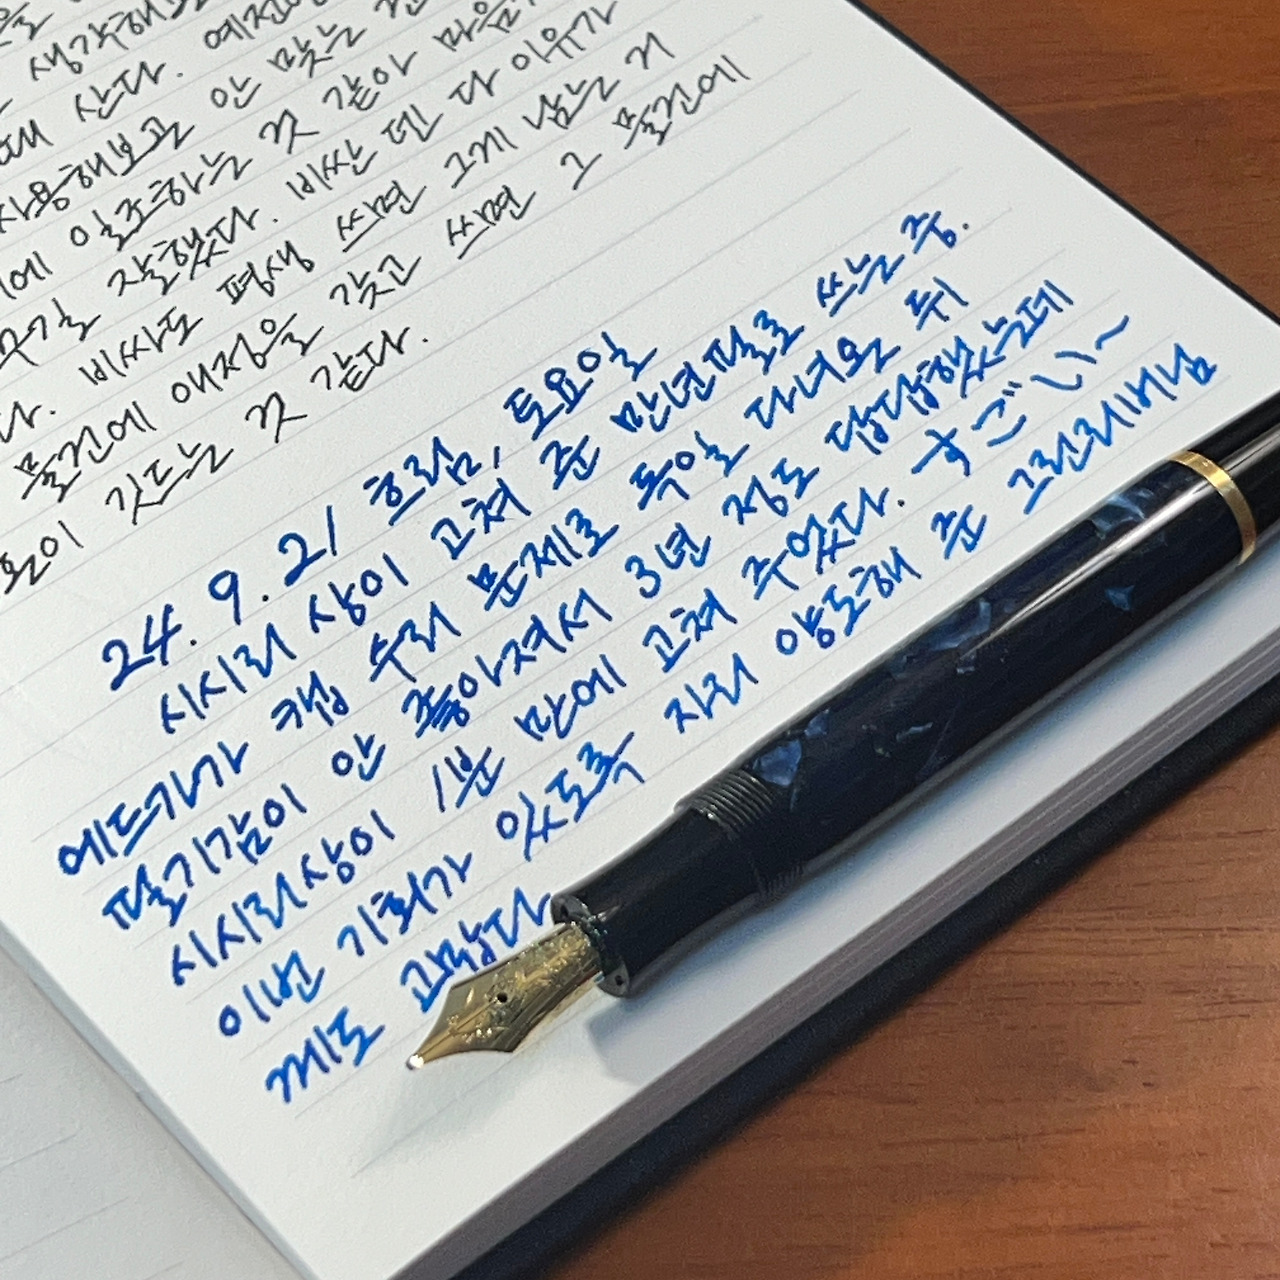 생각해보
산다. 예전엔
사용해보고 안 맞는
에 일조하는 것 같아 마음
구길 잘했다. 비싼 덴 다 이유가
다. 비싸도 평생 쓰면 그게 남는 거
물건에 애정을 갖고 쓰면 그 물건에
혼이 깃드는 것 같다.
24. 9. 21 흐림, 토요일
시시리 상이 고쳐 준 만년필로 쓰는 중.
에드가가 캡 수리 문제로 독일 다녀온 뒤
필기감이 안 좋아져서 3년 정도 답답했는데
시시리상이 1분 만에 고쳐 주었다. すごいー
이번 기회가 있도록 자리 양도해 준 그린레버님
께도 고맙다